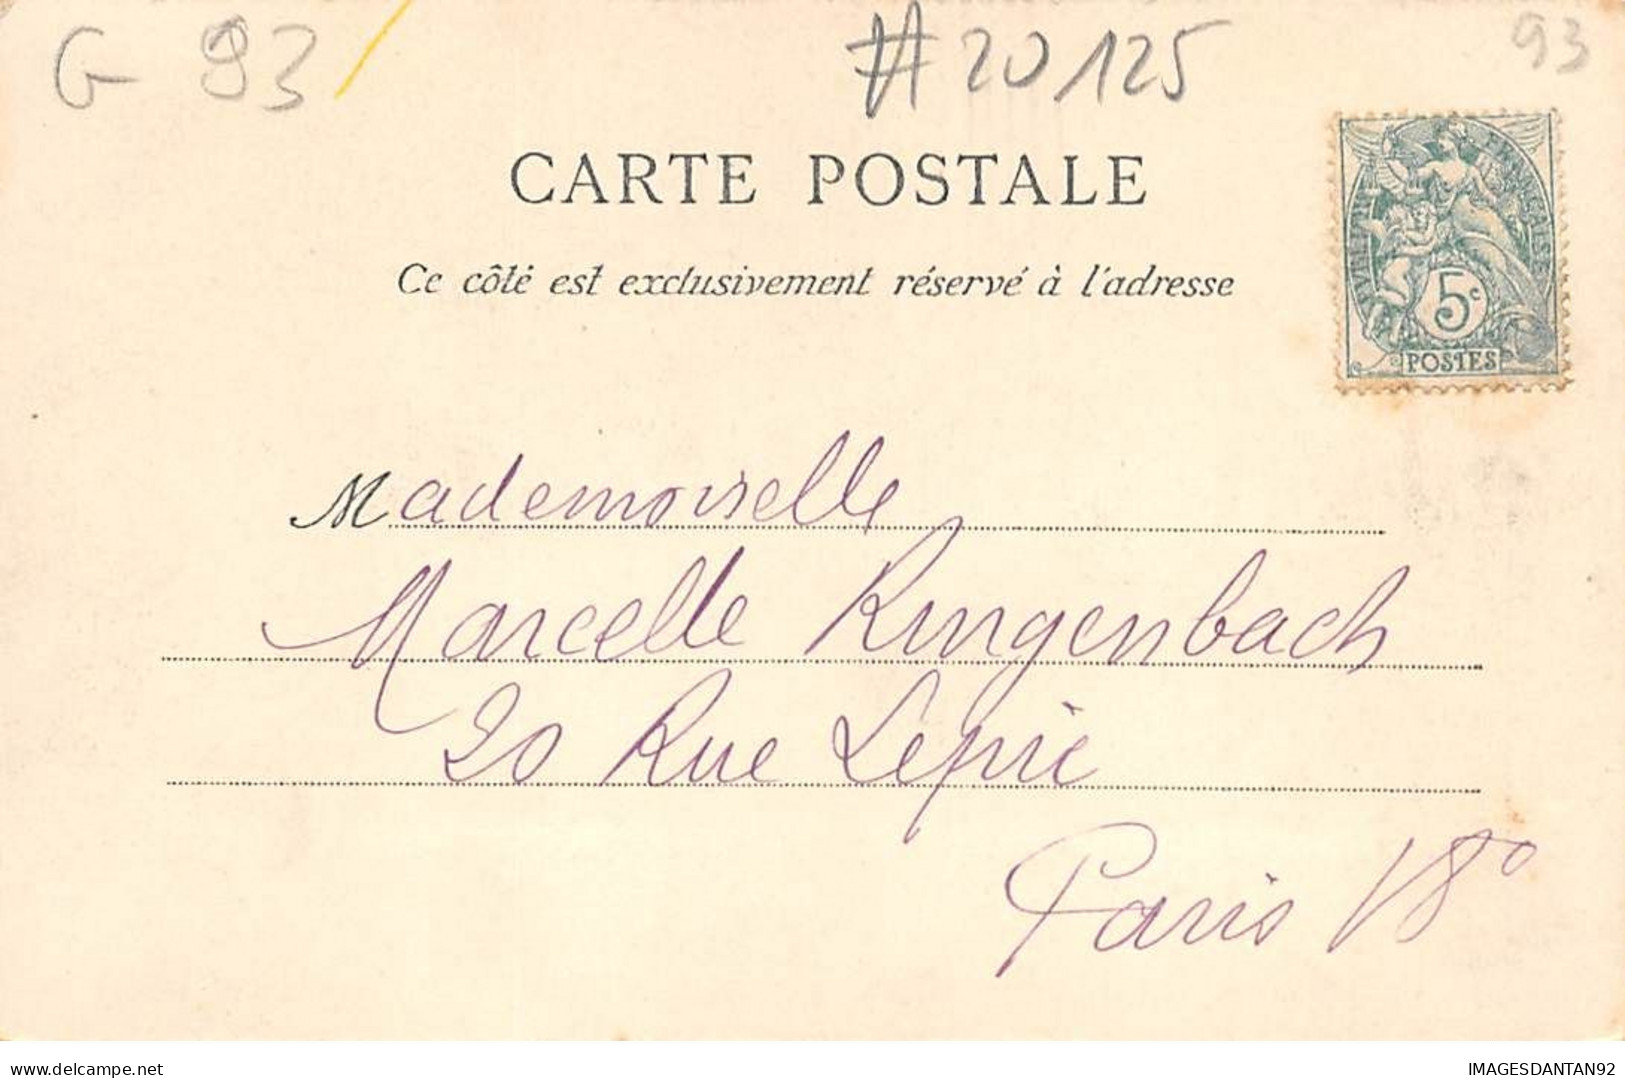 G 93
#20125
93
CARTE POSTALE
Ce côté est exclusivement réservé à l'adresse
RÉPUBLIQUE FRANÇAISE
5c
POSTES
Mademoiselle
Marcelle Ringenbach
20 Rue Lepic
Paris 18º
IMAGESDANTAN92